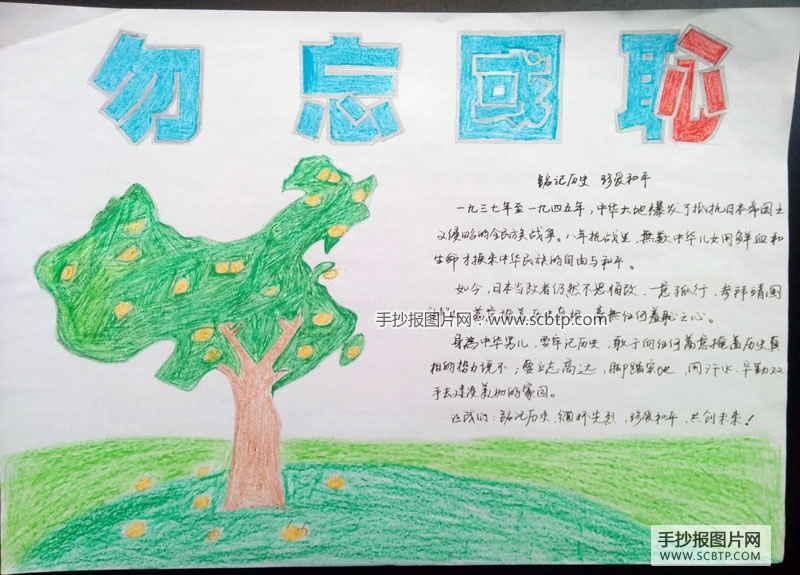 勿忘國恥
铭记历史 珍爱和平
一九三七年至一九四五年，中华大地爆发了抵抗日本帝国主
义侵略的全民族战争。八年抗战里，無数中华儿女用鲜血和
生命才换来中华民族的自由与和平。
如今，日本当政者仍然不思悔改，一意孤行，参拜靖國
毫無任何羞恥之心。
手抄报图片网：www.scbtp.com
身為中华男儿，要牢记历史，敢于向任何蓄意掩盖历史真
相的势力说不；要立志高远，脚踏实地，用汗水、辛勤双
手去建设美好的家园。
让我们：铭记历史，缅怀先烈，珍爱和平，共创未来！
手抄报图片网
WWW.SCBTP.COM